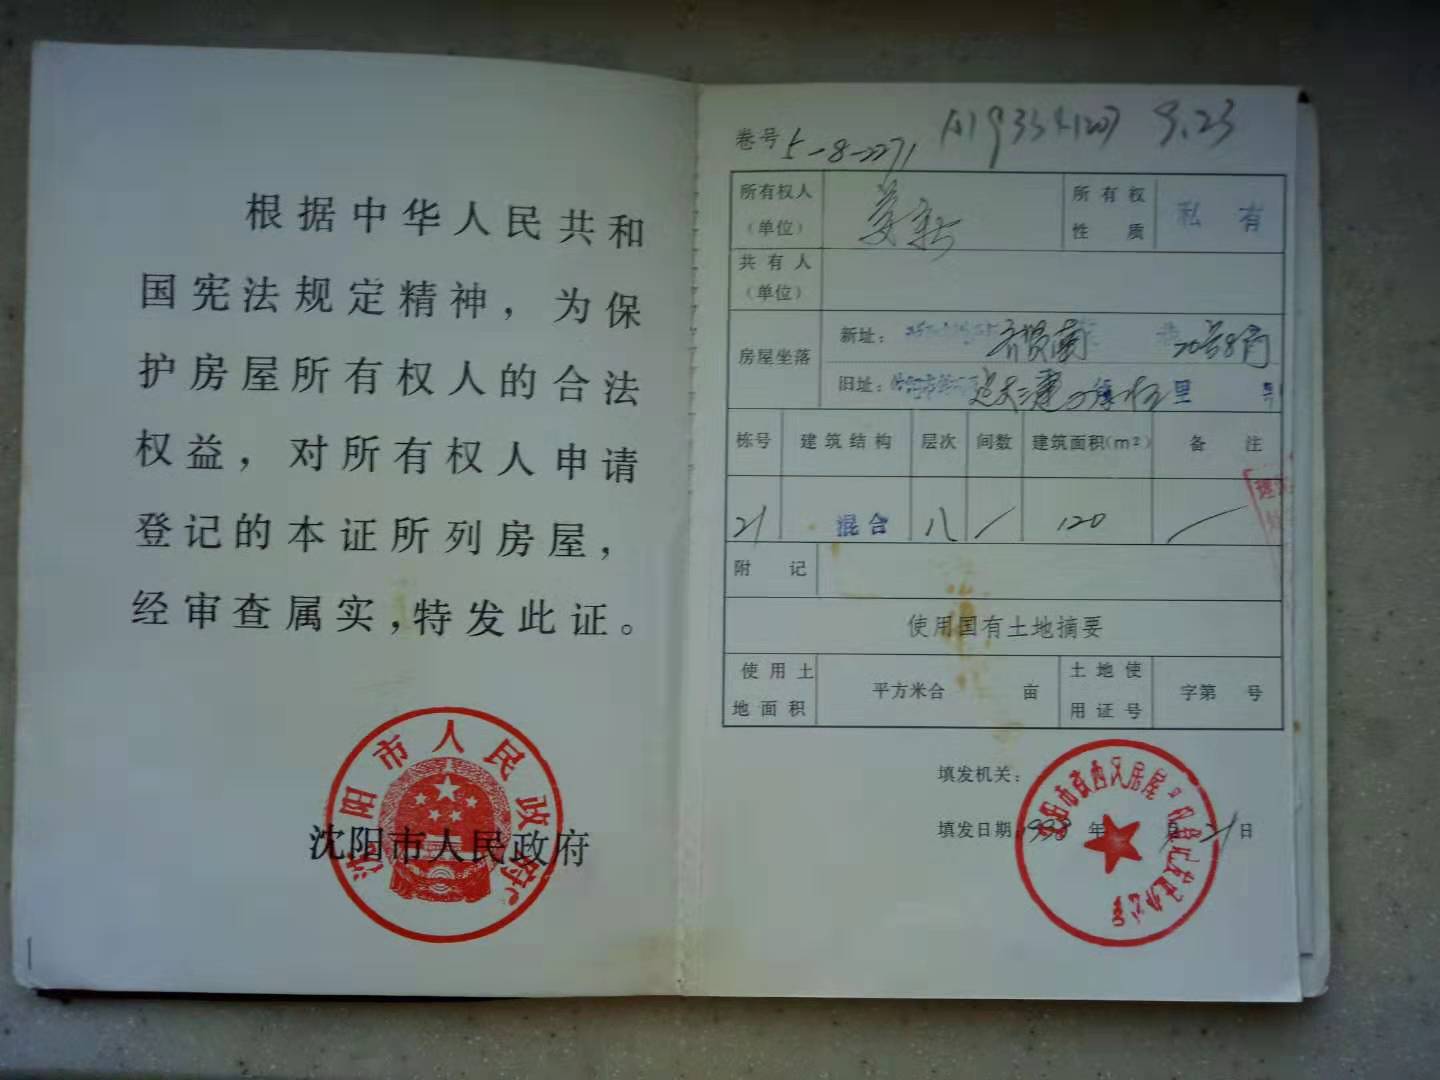 根据中华人民共和
国宪法规定精神，为保
护房屋所有权人的合法
权益，对所有权人申请
登记的本证所列房屋，
经审查属实，特发此证。
沈阳市人民政府
沈阳市人民政府
卷号 5-8-2271
9.23
所有权人
（单位）
姜新
所有权
性质
私有
共有人
（单位）
房屋坐落
新址：
20号8门
旧址：
里
栋号 建筑结构 层次 间数 建筑面积(m²) 备注
21 混合 八 / 120 /
附记
使用国有土地摘要
使用土
地面积
平方米合 亩
土地使
用证号
字第 号
填发机关：
填发日期：1998年 月21日